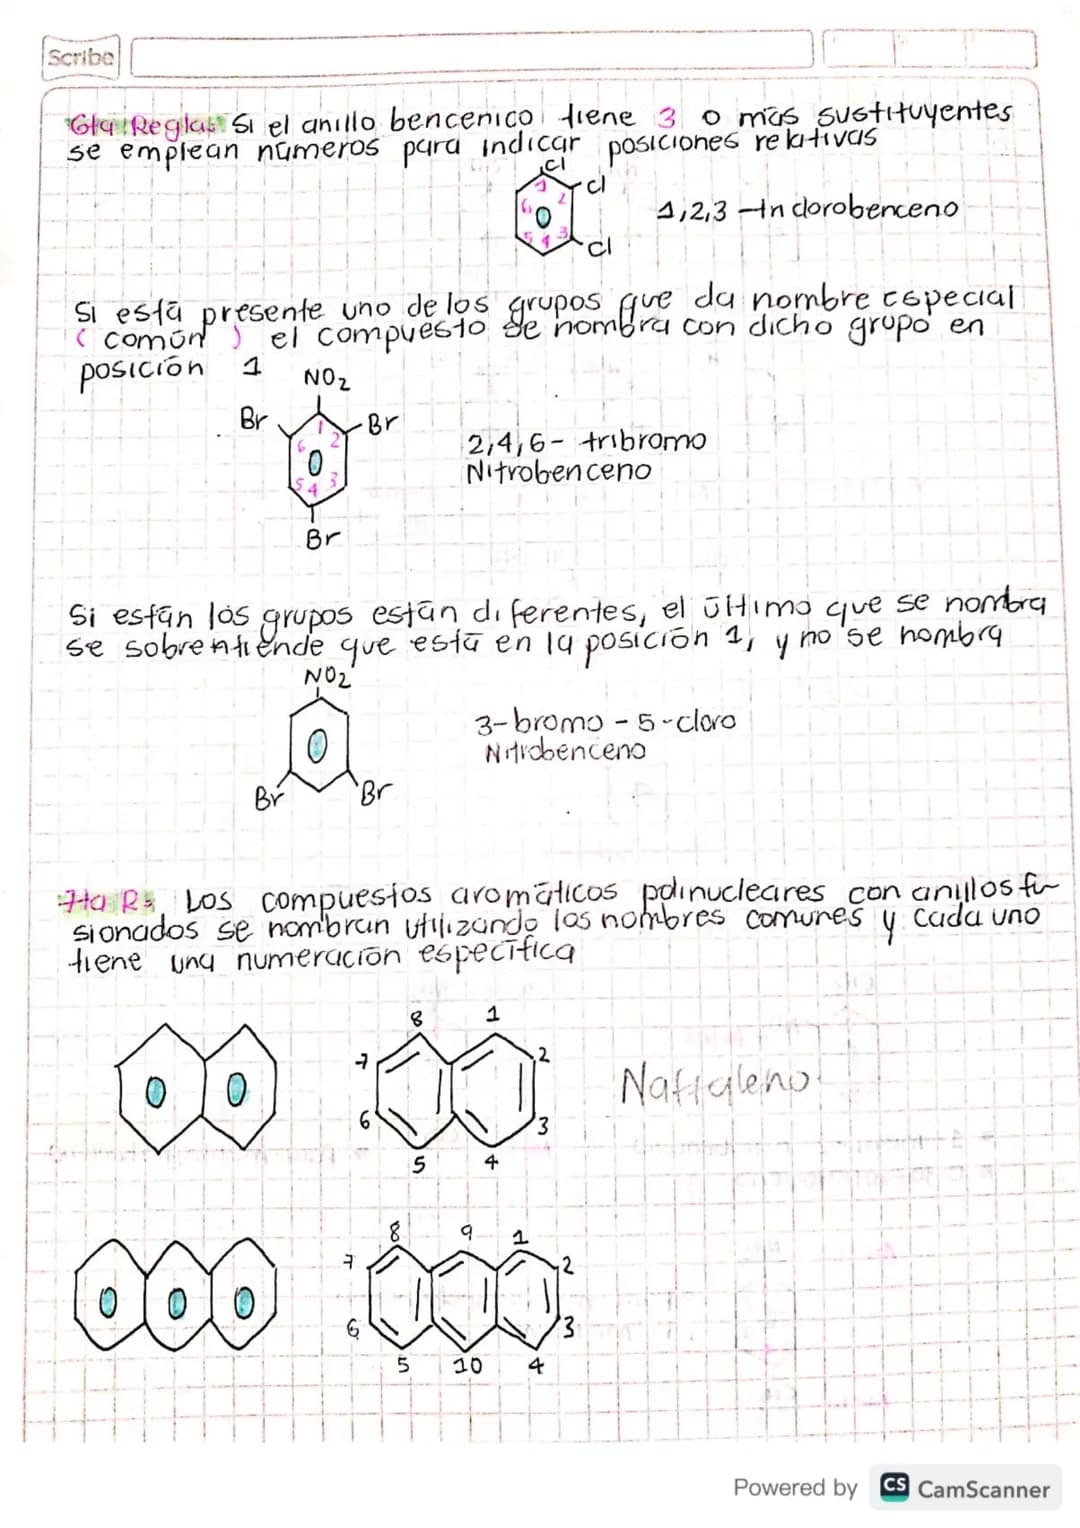 Scribe
6ta Regla: Si el anillo bencenico tiene 3 o más sustituyentes
se emplean números para indicar posiciones relativas
Cl
Cl
Cl
1
2
3
4
5
6
1,2,3-triclorobenceno
Si está presente uno de los grupos que da nombre especial
(común) el compuesto se nombra con dicho grupo en
posición 1
NO2
Br
Br
Br
1
2
3
4
5
6
2,4,6- tribromo
Nitrobenceno
Si están los grupos están diferentes, el último que se nombra
se sobrentiende que está en la posición 1, y no se nombra
NO2
Br
Br
3-bromo-5-cloro
Nitrobenceno
7ta R: Los compuestos aromáticos polinucleares con anillos fu-
sionados se nombran utilizando los nombres comunes y cada uno
tiene una numeración específica
8 1
7 2
6 3
5 4
Naftaleno
8 9 1
7 2
6 3
5 10 4
Powered by CS CamScanner